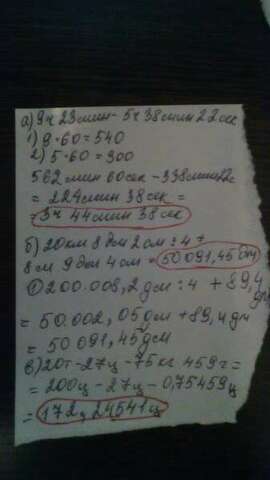 а) 9ч 23мин - 5ч 38мин 22сек
1) 9·60=540
2) 5·60=300
562мин 60сек - 338мин22с
= 224мин 38сек =
= 3ч 44мин 38сек
б) 20км 8дм 2см : 4 +
8см 9дм 4см = 50 091,45дм
① 200.008,2дм : 4 + 89,4
= 50.002,05дм + 89,4дм
= 50 091,45дм
в) 20т - 27ц - 75кг 459г =
= 200ц - 27ц - 0,75459ц
= 172,24541ц